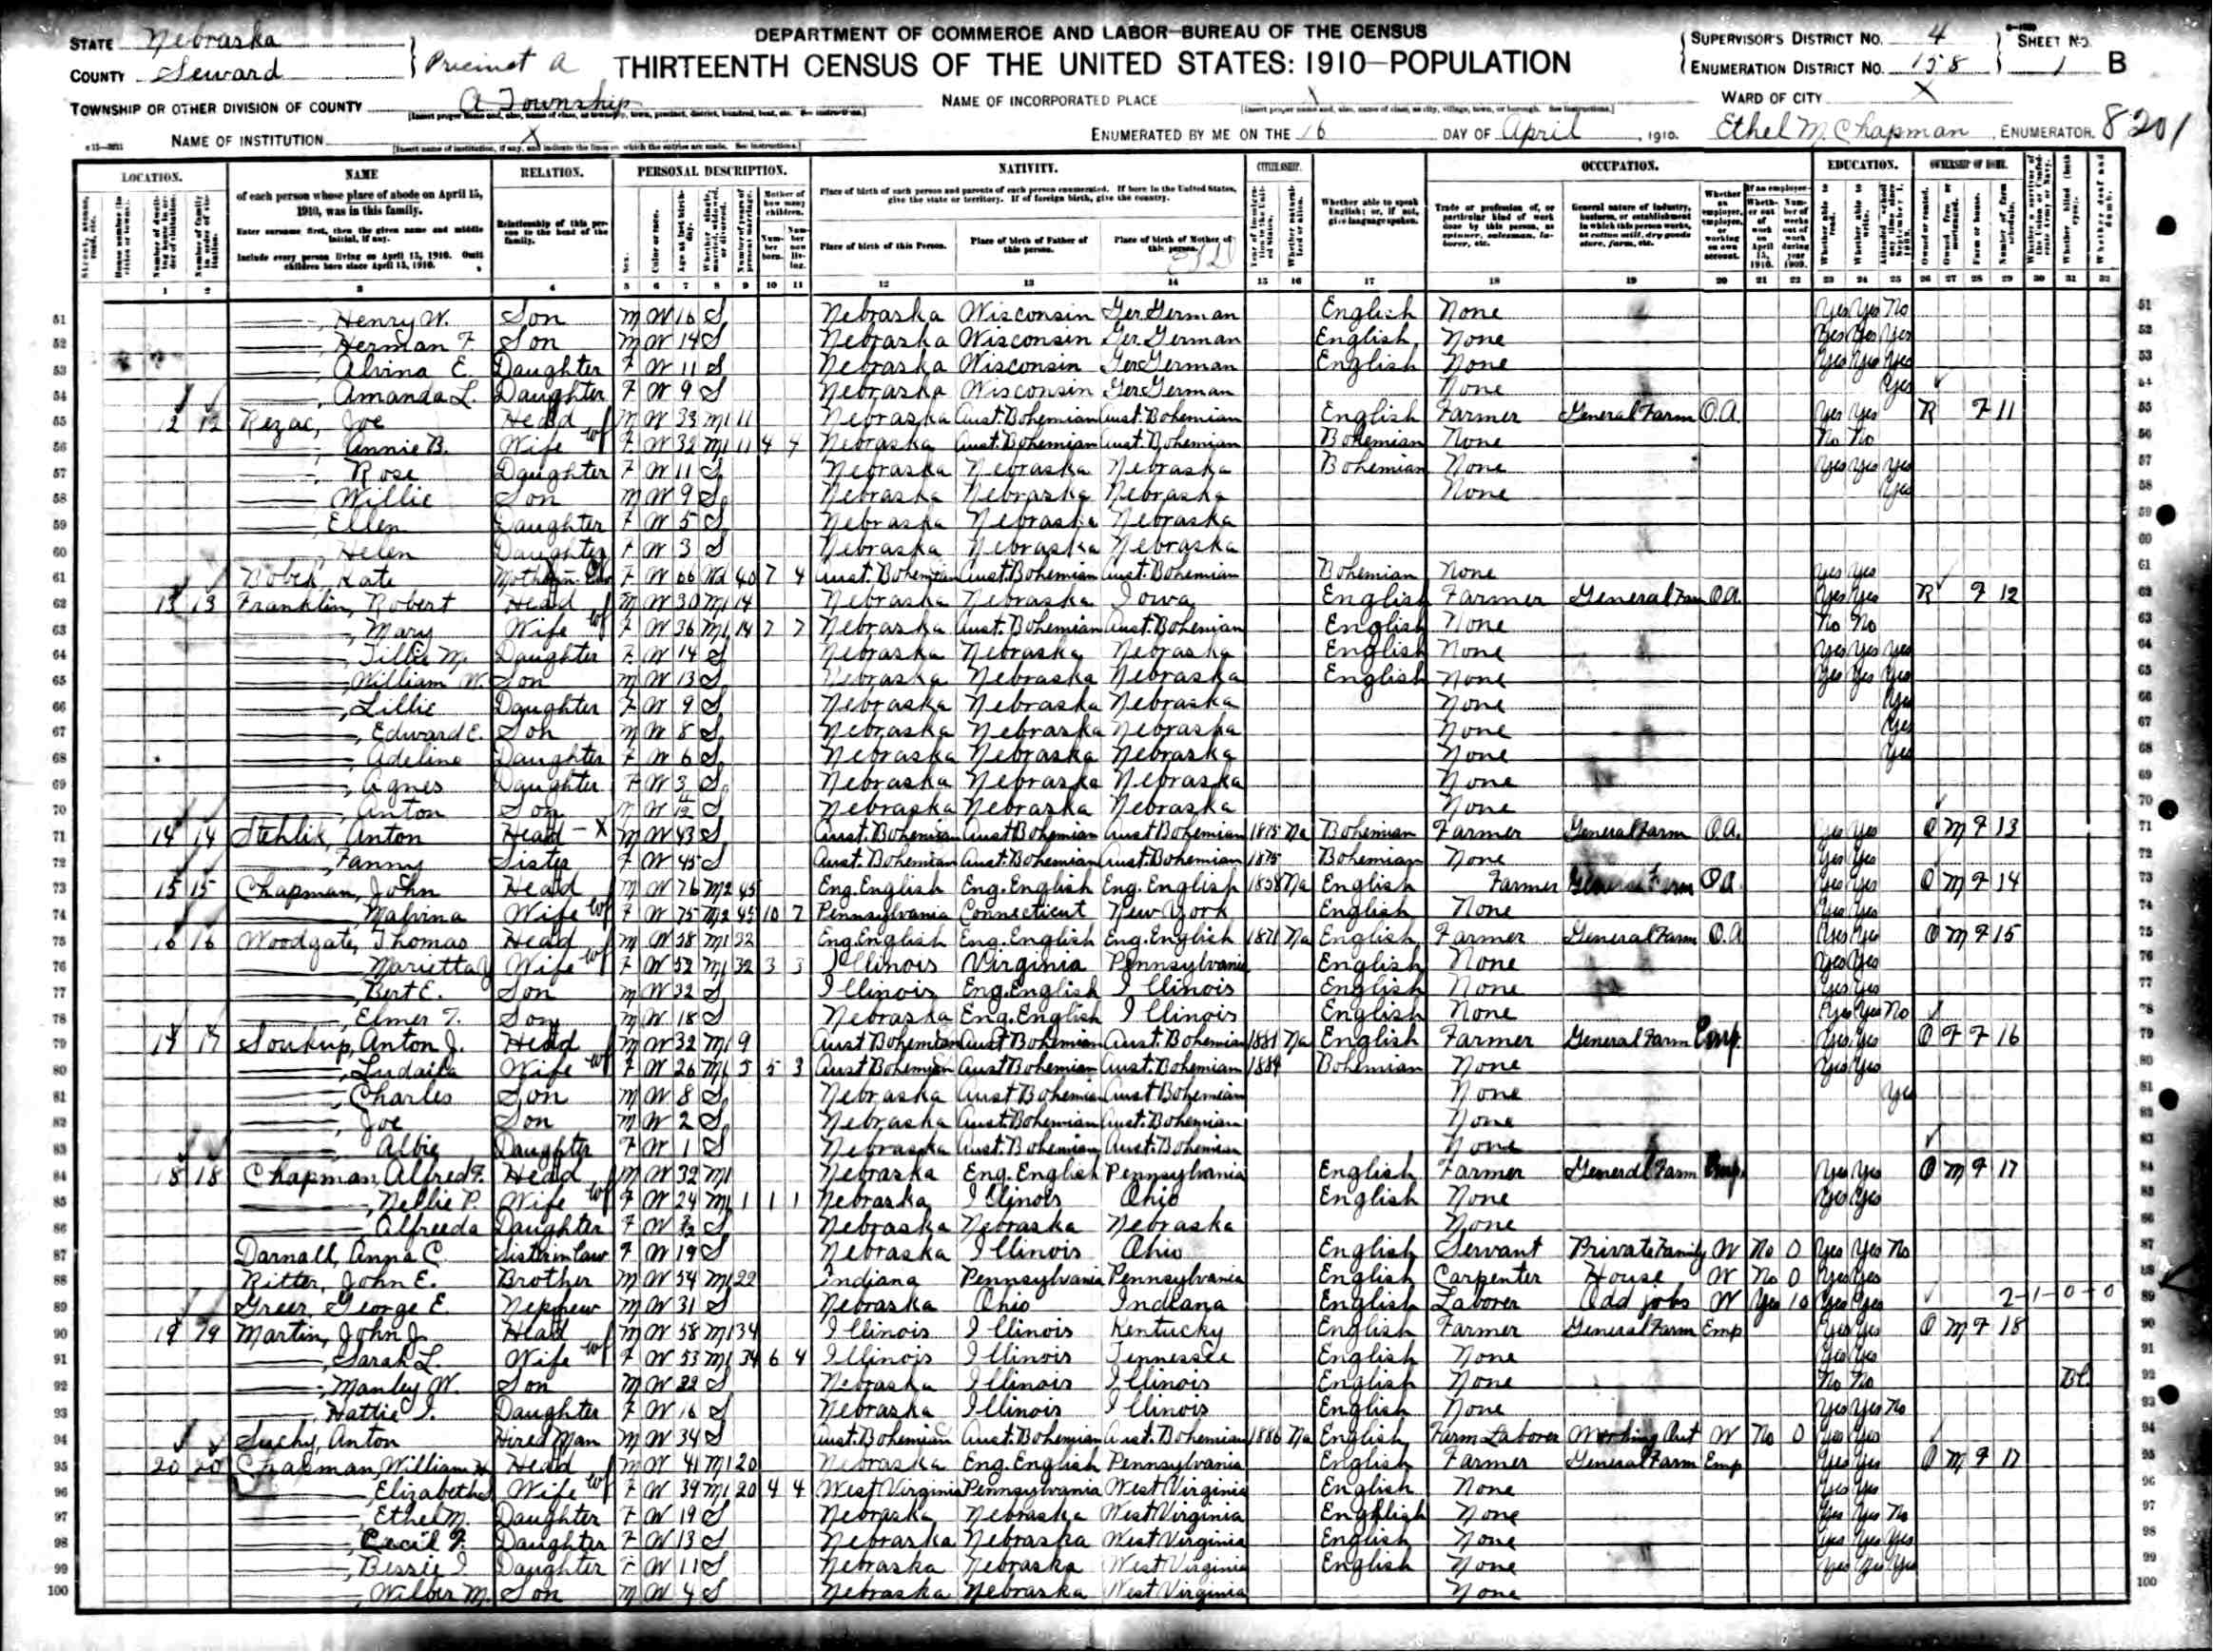 DEPARTMENT OF COMMERCE AND LABOR—BUREAU OF THE CENSUS
THIRTEENTH CENSUS OF THE UNITED STATES: 1910—POPULATION
STATE Nebraska
COUNTY Seward
Precinct A
SUPERVISOR'S DISTRICT NO. 4
ENUMERATION DISTRICT NO. 158
SHEET NO. 1 B
TOWNSHIP OR OTHER DIVISION OF COUNTY A Township
NAME OF INCORPORATED PLACE X
WARD OF CITY X
NAME OF INSTITUTION X
ENUMERATED BY ME ON THE 16 DAY OF April, 1910. Ethel M. Chapman, ENUMERATOR. 8201
LOCATION. NAME RELATION. PERSONAL DESCRIPTION. NATIVITY. CITIZENSHIP. OCCUPATION. EDUCATION. OWNERSHIP OF HOME.
of each person whose place of abode on April 15, 1910, was in this family.
Enter surname first, then the given name and middle initial, if any.
Include every person living on April 15, 1910. Omit children born since April 15, 1910.
Relationship of this person to the head of the family.
Place of birth of each person and parents of each person enumerated. If born in the United States, give the state or territory. If of foreign birth, give the country.
Place of birth of this Person. Place of birth of Father of this person. Place of birth of Mother of this person.
Whether able to speak English; or, if not, give language spoken.
1 2 3 4 5 6 7 8 9 10 11 12 13 14 15 16 17 18 19 20 21 22 23 24 25 26 27 28 29 30 31 32
51 —, Henry W. Son M W 16 S Nebraska Wisconsin Ger. German English None Yes Yes No
52 —, Herman F. Son M W 14 S Nebraska Wisconsin Ger. German English None Yes Yes Yes
53 —, Alvina E. Daughter F W 11 S Nebraska Wisconsin Ger. German English None Yes Yes Yes
54 —, Amanda L. Daughter F W 9 S Nebraska Wisconsin Ger. German None Yes
55 12 12 Rezac, Joe Head M W 33 M1 11 Nebraska Aust. Bohemian Aust. Bohemian English Farmer General Farm O.A. Yes Yes R F 11
56 —, Annie B. Wife F W 32 M1 11 4 4 Nebraska Aust. Bohemian Aust. Bohemian Bohemian None No No
57 —, Rose Daughter F W 11 S Nebraska Nebraska Nebraska Bohemian None Yes Yes Yes
58 — Willie Son M W 9 S Nebraska Nebraska Nebraska None Yes
59 —, Ellen Daughter F W 5 S Nebraska Nebraska Nebraska
60 —, Helen Daughter F W 3 S Nebraska Nebraska Nebraska
61 Kate F W 66 Wd 40 7 4 Aust. Bohemian Aust. Bohemian Aust. Bohemian Bohemian None Yes Yes
62 13 13 Franklin, Robert Head M W 30 M1 14 Nebraska Nebraska Iowa English Farmer General Farm O.A. Yes Yes R F 12
63 —, Mary Wife F W 36 M1 14 7 7 Nebraska Aust. Bohemian Aust. Bohemian English None No No
64 —, Tillie M. Daughter F W 14 S Nebraska Nebraska Nebraska English None Yes Yes Yes
65 —, William W. Son M W 13 S Nebraska Nebraska Nebraska English None Yes Yes Yes
66 —, Lillie Daughter F W 9 S Nebraska Nebraska Nebraska None Yes
67 —, Edward E. Son M W 8 S Nebraska Nebraska Nebraska None Yes
68 —, Adeline Daughter F W 6 S Nebraska Nebraska Nebraska None Yes
69 —, Agnes Daughter F W 3 S Nebraska Nebraska Nebraska None
70 —, Anton Son M W S Nebraska Nebraska Nebraska None
71 14 14 Stehlik, Anton Head — X M W 43 S Aust. Bohemian Aust. Bohemian Aust. Bohemian 1875 Na Bohemian Farmer General Farm O.A. Yes Yes O M F 13
72 —, Fanny Sister F W 45 S Aust. Bohemian Aust. Bohemian Aust. Bohemian 1875 Bohemian None Yes Yes
73 15 15 Chapman, John Head M W 76 M2 45 Eng. English Eng. English Eng. English 1858 Na English Farmer General Farm O.A. Yes Yes O M F 14
74 —, Malvina Wife F W 75 M2 45 10 7 Pennsylvania Connecticut New York English None Yes Yes
75 16 16 Woodgate, Thomas Head M W 58 M1 32 Eng. English Eng. English Eng. English 1871 Na English Farmer General Farm O.A. Yes Yes O M F 15
76 — Marietta Wife F W 52 M1 32 3 3 Illinois Virginia Pennsylvania English None Yes Yes
77 —, Bert E. Son M W 32 S Illinois Eng. English Illinois English None Yes Yes
78 —, Elmer T. Son M W 18 S Nebraska Eng. English Illinois English None Yes Yes No
79 17 17 Soukup, Anton J. Head M W 32 M1 9 Aust. Bohemian Aust. Bohemian Aust. Bohemian 1881 Na English Farmer General Farm Emp. Yes Yes O F F 16
80 Wife F W 26 M1 5 3 Aust. Bohemian Aust. Bohemian Aust. Bohemian 1884 Bohemian None Yes Yes
81 —, Charles Son M W 8 S Nebraska Aust. Bohemian Aust. Bohemian None Yes
82 —, Joe Son M W 2 S Nebraska Aust. Bohemian Aust. Bohemian None
83 —, Albie Daughter F W 1 S Nebraska Aust. Bohemian Aust. Bohemian None
84 18 18 Chapman, Alfred F. Head M W 32 M1 Nebraska Eng. English Pennsylvania English Farmer General Farm Emp. Yes Yes O M F 17
85 —, Nellie P. Wife F W 24 M1 1 1 1 Nebraska Illinois Ohio English None Yes Yes
86 — Alfreeda Daughter F W S Nebraska Nebraska Nebraska None
87 Darnall, Anna C. Sister in law F W 19 S Nebraska Illinois Ohio English Servant Private Family W No 0 Yes Yes No
88 Ritter, John E. Brother M W 54 M1 22 Indiana Pennsylvania Pennsylvania English Carpenter House W No 0 Yes Yes
89 Greer, George E. Nephew M W 31 S Nebraska Ohio Indiana English Laborer Odd jobs W Yes 10 Yes Yes 2-1-0-0
90 19 19 Martin, John J. Head M W 58 M1 34 Illinois Illinois Kentucky English Farmer General Farm Emp Yes Yes O M F 18
91 —, Sarah L. Wife F W 53 M1 34 6 4 Illinois Illinois Tennessee English None Yes Yes
92 —, Manley W. Son M W 22 S Nebraska Illinois Illinois English None No No Bl.
93 —, Hattie I. Daughter F W 16 S Nebraska Illinois Illinois English None Yes Yes No
94 Suchy, Anton Hired Man M W 34 S Aust. Bohemian Aust. Bohemian Aust. Bohemian 1886 Na English Farm Laborer Working Out W No 0 Yes Yes
95 20 20 Chapman, William H. Head M W 41 M1 20 Nebraska Eng. English Pennsylvania English Farmer General Farm Emp Yes Yes O M F 17
96 —, Elizabeth Wife F W 39 M1 20 4 4 West Virginia Pennsylvania West Virginia English None Yes Yes
97 —, Ethel M. Daughter F W 19 S Nebraska Nebraska West Virginia English None Yes Yes No
98 —, Cecil F. Daughter F W 13 S Nebraska Nebraska West Virginia English None Yes Yes Yes
99 —, Bessie I. Daughter F W 11 S Nebraska Nebraska West Virginia English None Yes Yes Yes
100 —, Wilber M. Son M W 4 S Nebraska Nebraska West Virginia None